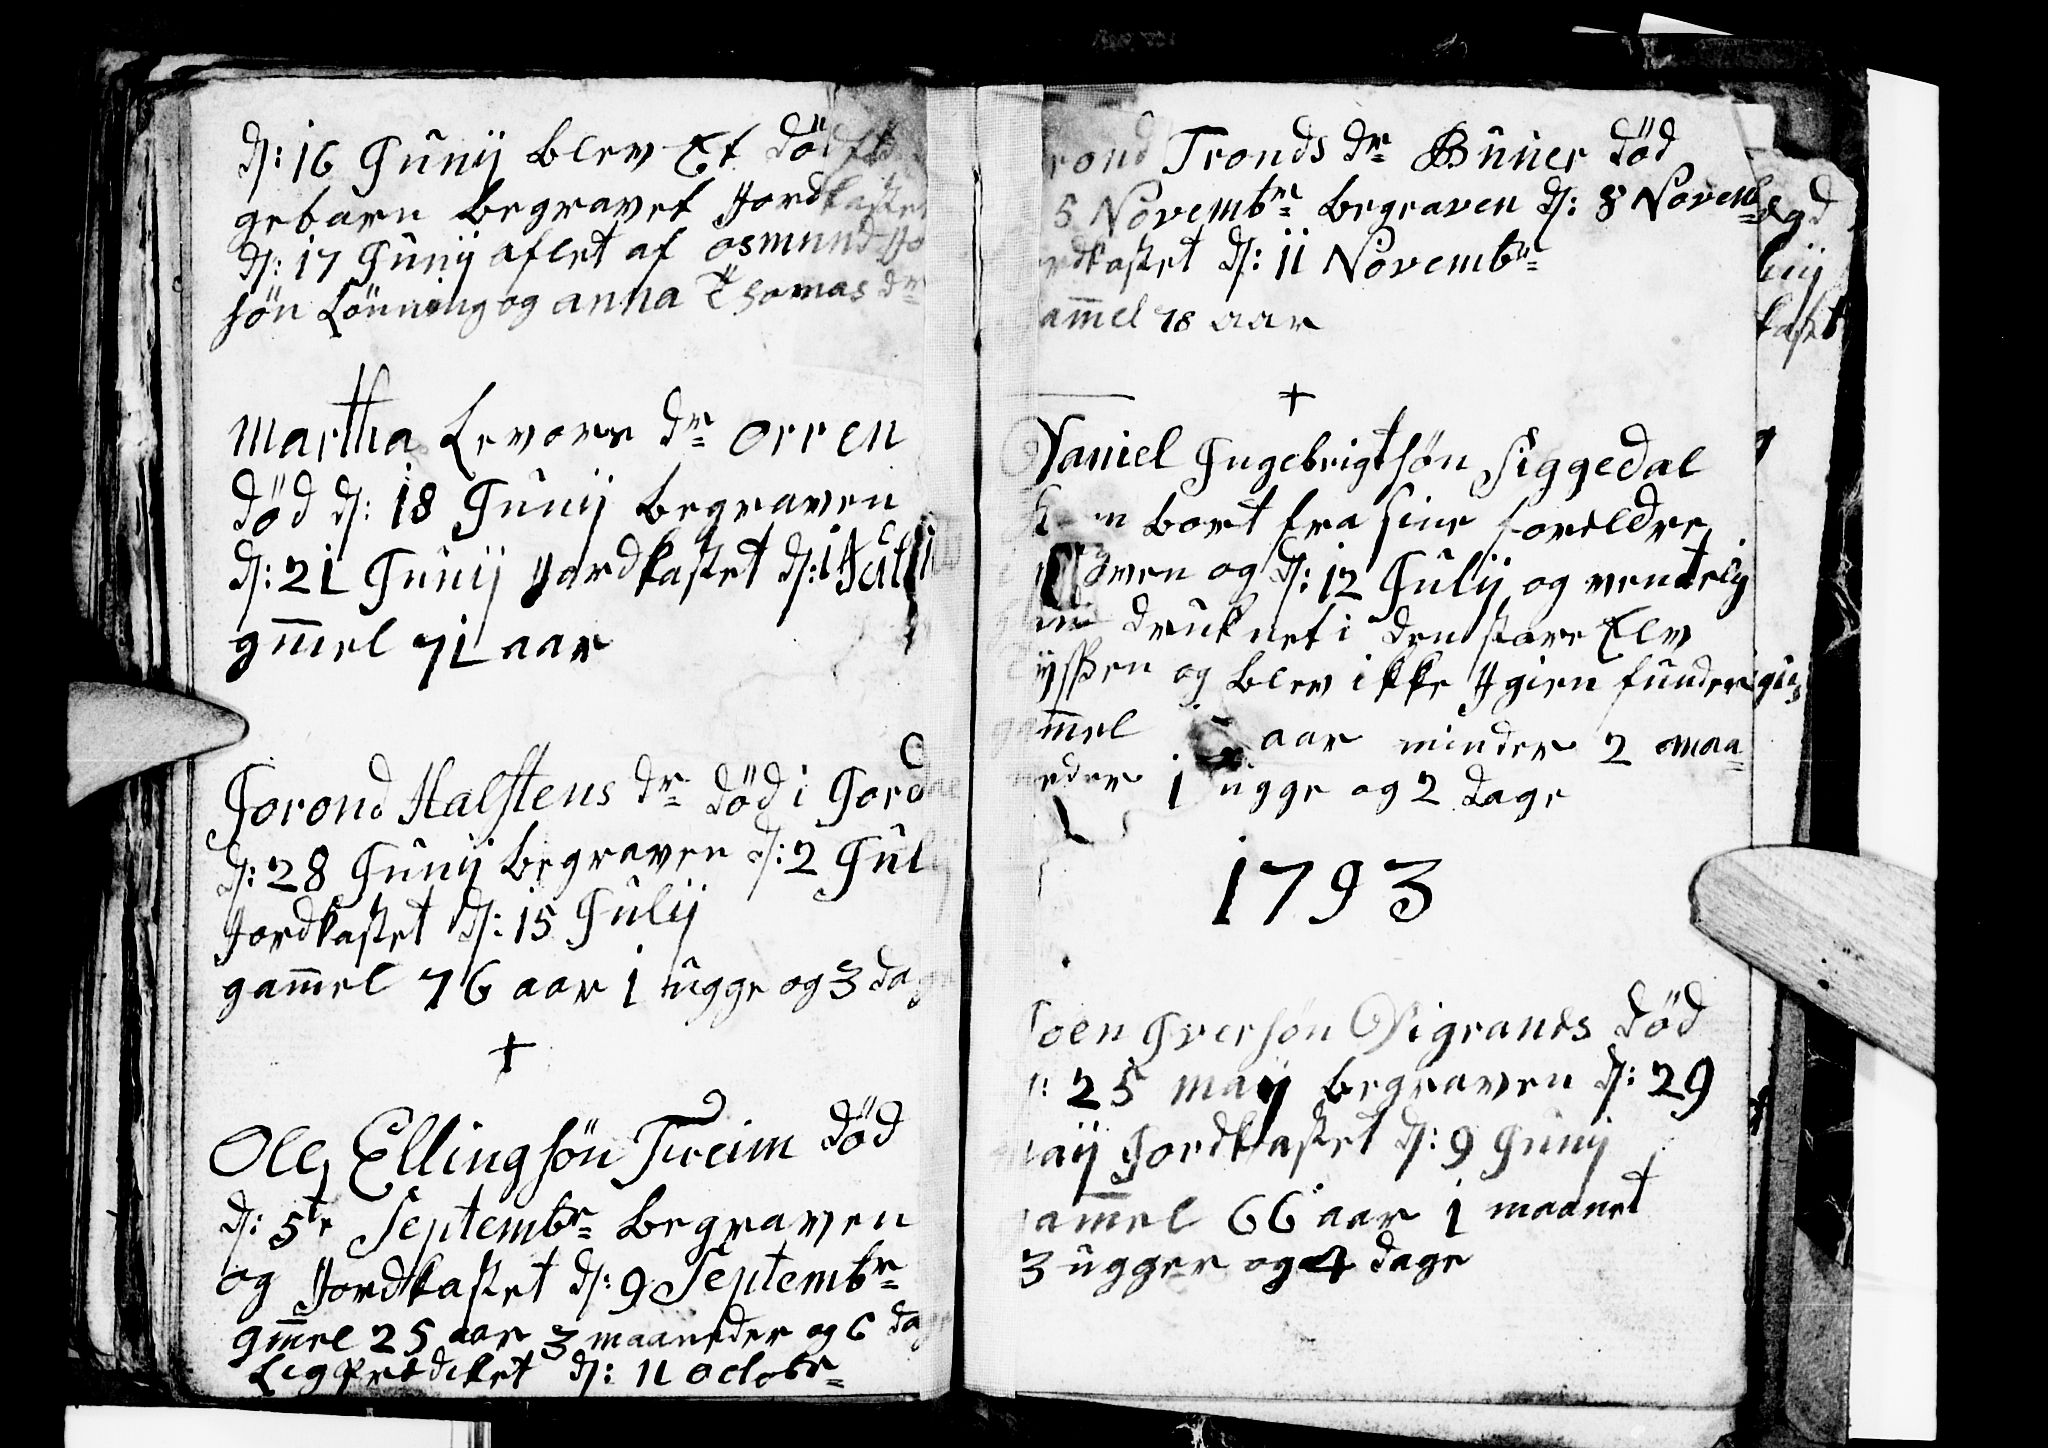 ds: 16 Junij blev Et död
gebarn begravet Jordkastet
ds: 17 Junij aflet af osmund
sön Lönning og anna Thomas dr
Martha Levors dr orren
död ds: 18 Junij begraven
ds: 21 Junij Jordkastet ds: 1 Julij
gm̄el 71 aar
Jorond Halstens dr död i Jordal
ds: 28 Junij begraven ds: 2 Julij
Jordkastet ds: 15 Julij
gam̄el 76 aar 1 ugge og 3 dage
Ole Ellingsön Tveim död
ds: 5te Septembr begraven
og Jordkastet ds: 9 Septembr
gm̄el 25 aar 3 maaneder og 6 dage
Ligprediket ds: 11 octobr
rond Tronds dr Buuer död
5 Novembr begraven ds: 8 Novemb
rdkastet ds: 11 Novembr
am̄el 78 aar
Daniel Ingebrigtsøn Siggedal
bort fra sine foreldre
og ds: 12 Julij og ventelig
druknet i den store Elv
og blev ikke Igien funden
gam̄el aar minder 2 maa
neder 1 ugge og 2 dage
1793
Joen Iversøn Vigrands död
ds: 25 maij begraven ds: 29
maij Jordkastet ds: 9 Junij
gam̄el 66 aar 1 maanet
3 ugger og 4 dage